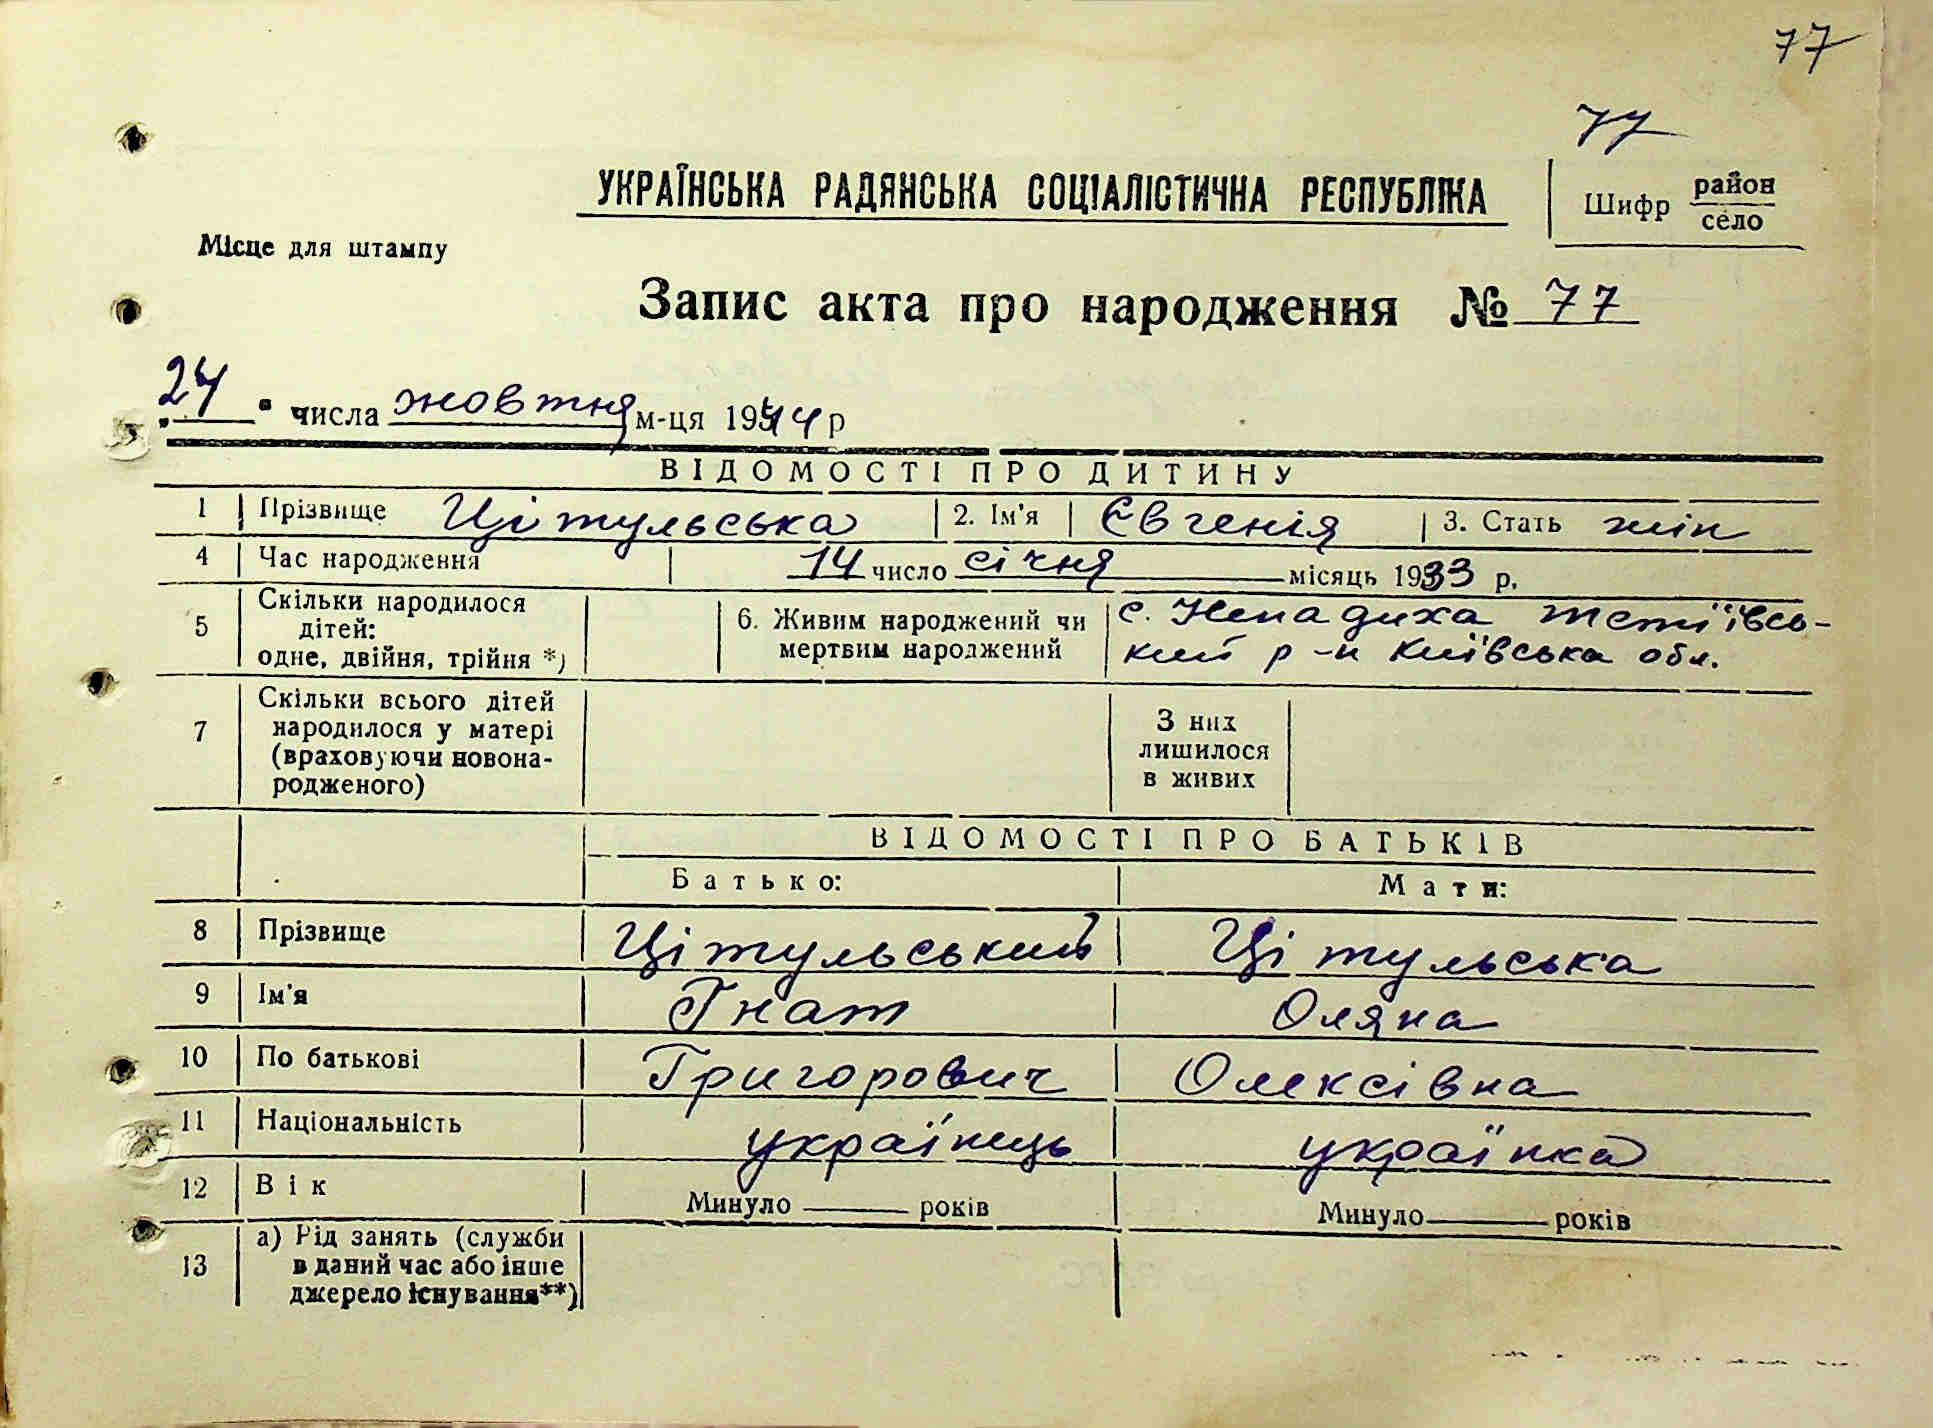 77
77
УКРАЇНСЬКА РАДЯНСЬКА СОЦІАЛІСТИЧНА РЕСПУБЛІКА
Шифр район село
Місце для штампу
Запис акта про народження № 77
"24" числа жовтня м-ця 1944 р
ВІДОМОСТІ ПРО ДИТИНУ
1 Прізвище Цітульська 2. Ім'я Євгенія 3. Стать жін
4 Час народження 14 число січня місяць 1933 р.
5 Скільки народилося дітей: одне, двійня, трійня *)
6. Живим народжений чи мертвим народжений
с. Ненадиха Тетіївсь-
кий р-н Київська обл.
7 Скільки всього дітей народилося у матері (враховуючи новона-родженого)
З них лишилося в живих
ВІДОМОСТІ ПРО БАТЬКІВ
Батько: Мати:
8 Прізвище Цітульський Цітульська
9 Ім'я Гнат Оляна
10 По батькові Григорович Олексівна
11 Національність українець українка
12 Вік Минуло —— років Минуло —— років
13 а) Рід занять (служби
в даний час або інше
джерело існування**)